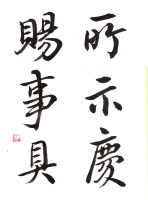 所示慶
賜事具